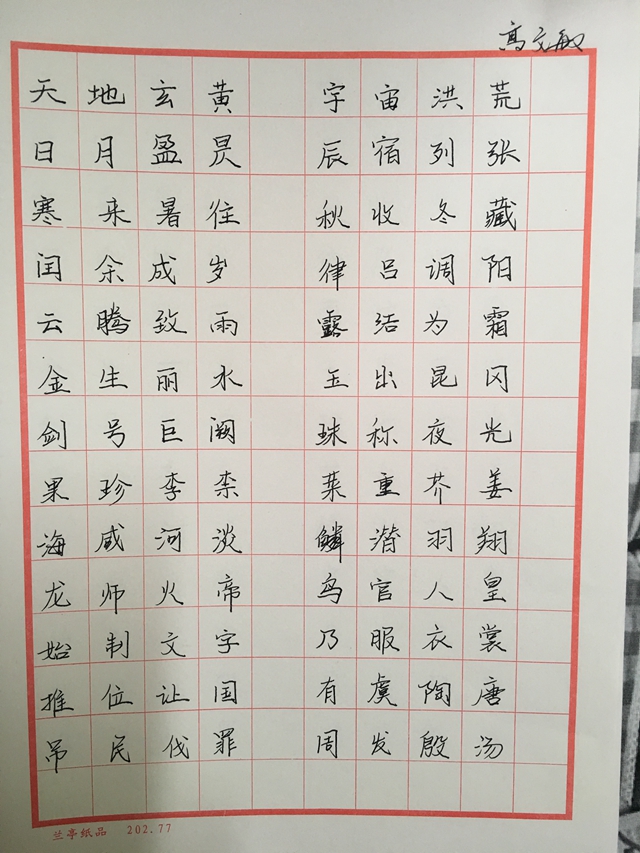 高文敏
天地玄黄 宇宙洪荒
日月盈昃 辰宿列张
寒来暑往 秋收冬藏
闰余成岁 律吕调阳
云腾致雨 露结为霜
金生丽水 玉出昆冈
剑号巨阙 珠称夜光
果珍李柰 菜重芥姜
海咸河淡 鳞潜羽翔
龙师火帝 鸟官人皇
始制文字 乃服衣裳
推位让国 有虞陶唐
吊民伐罪 周发殷汤
兰亭纸品 202.77